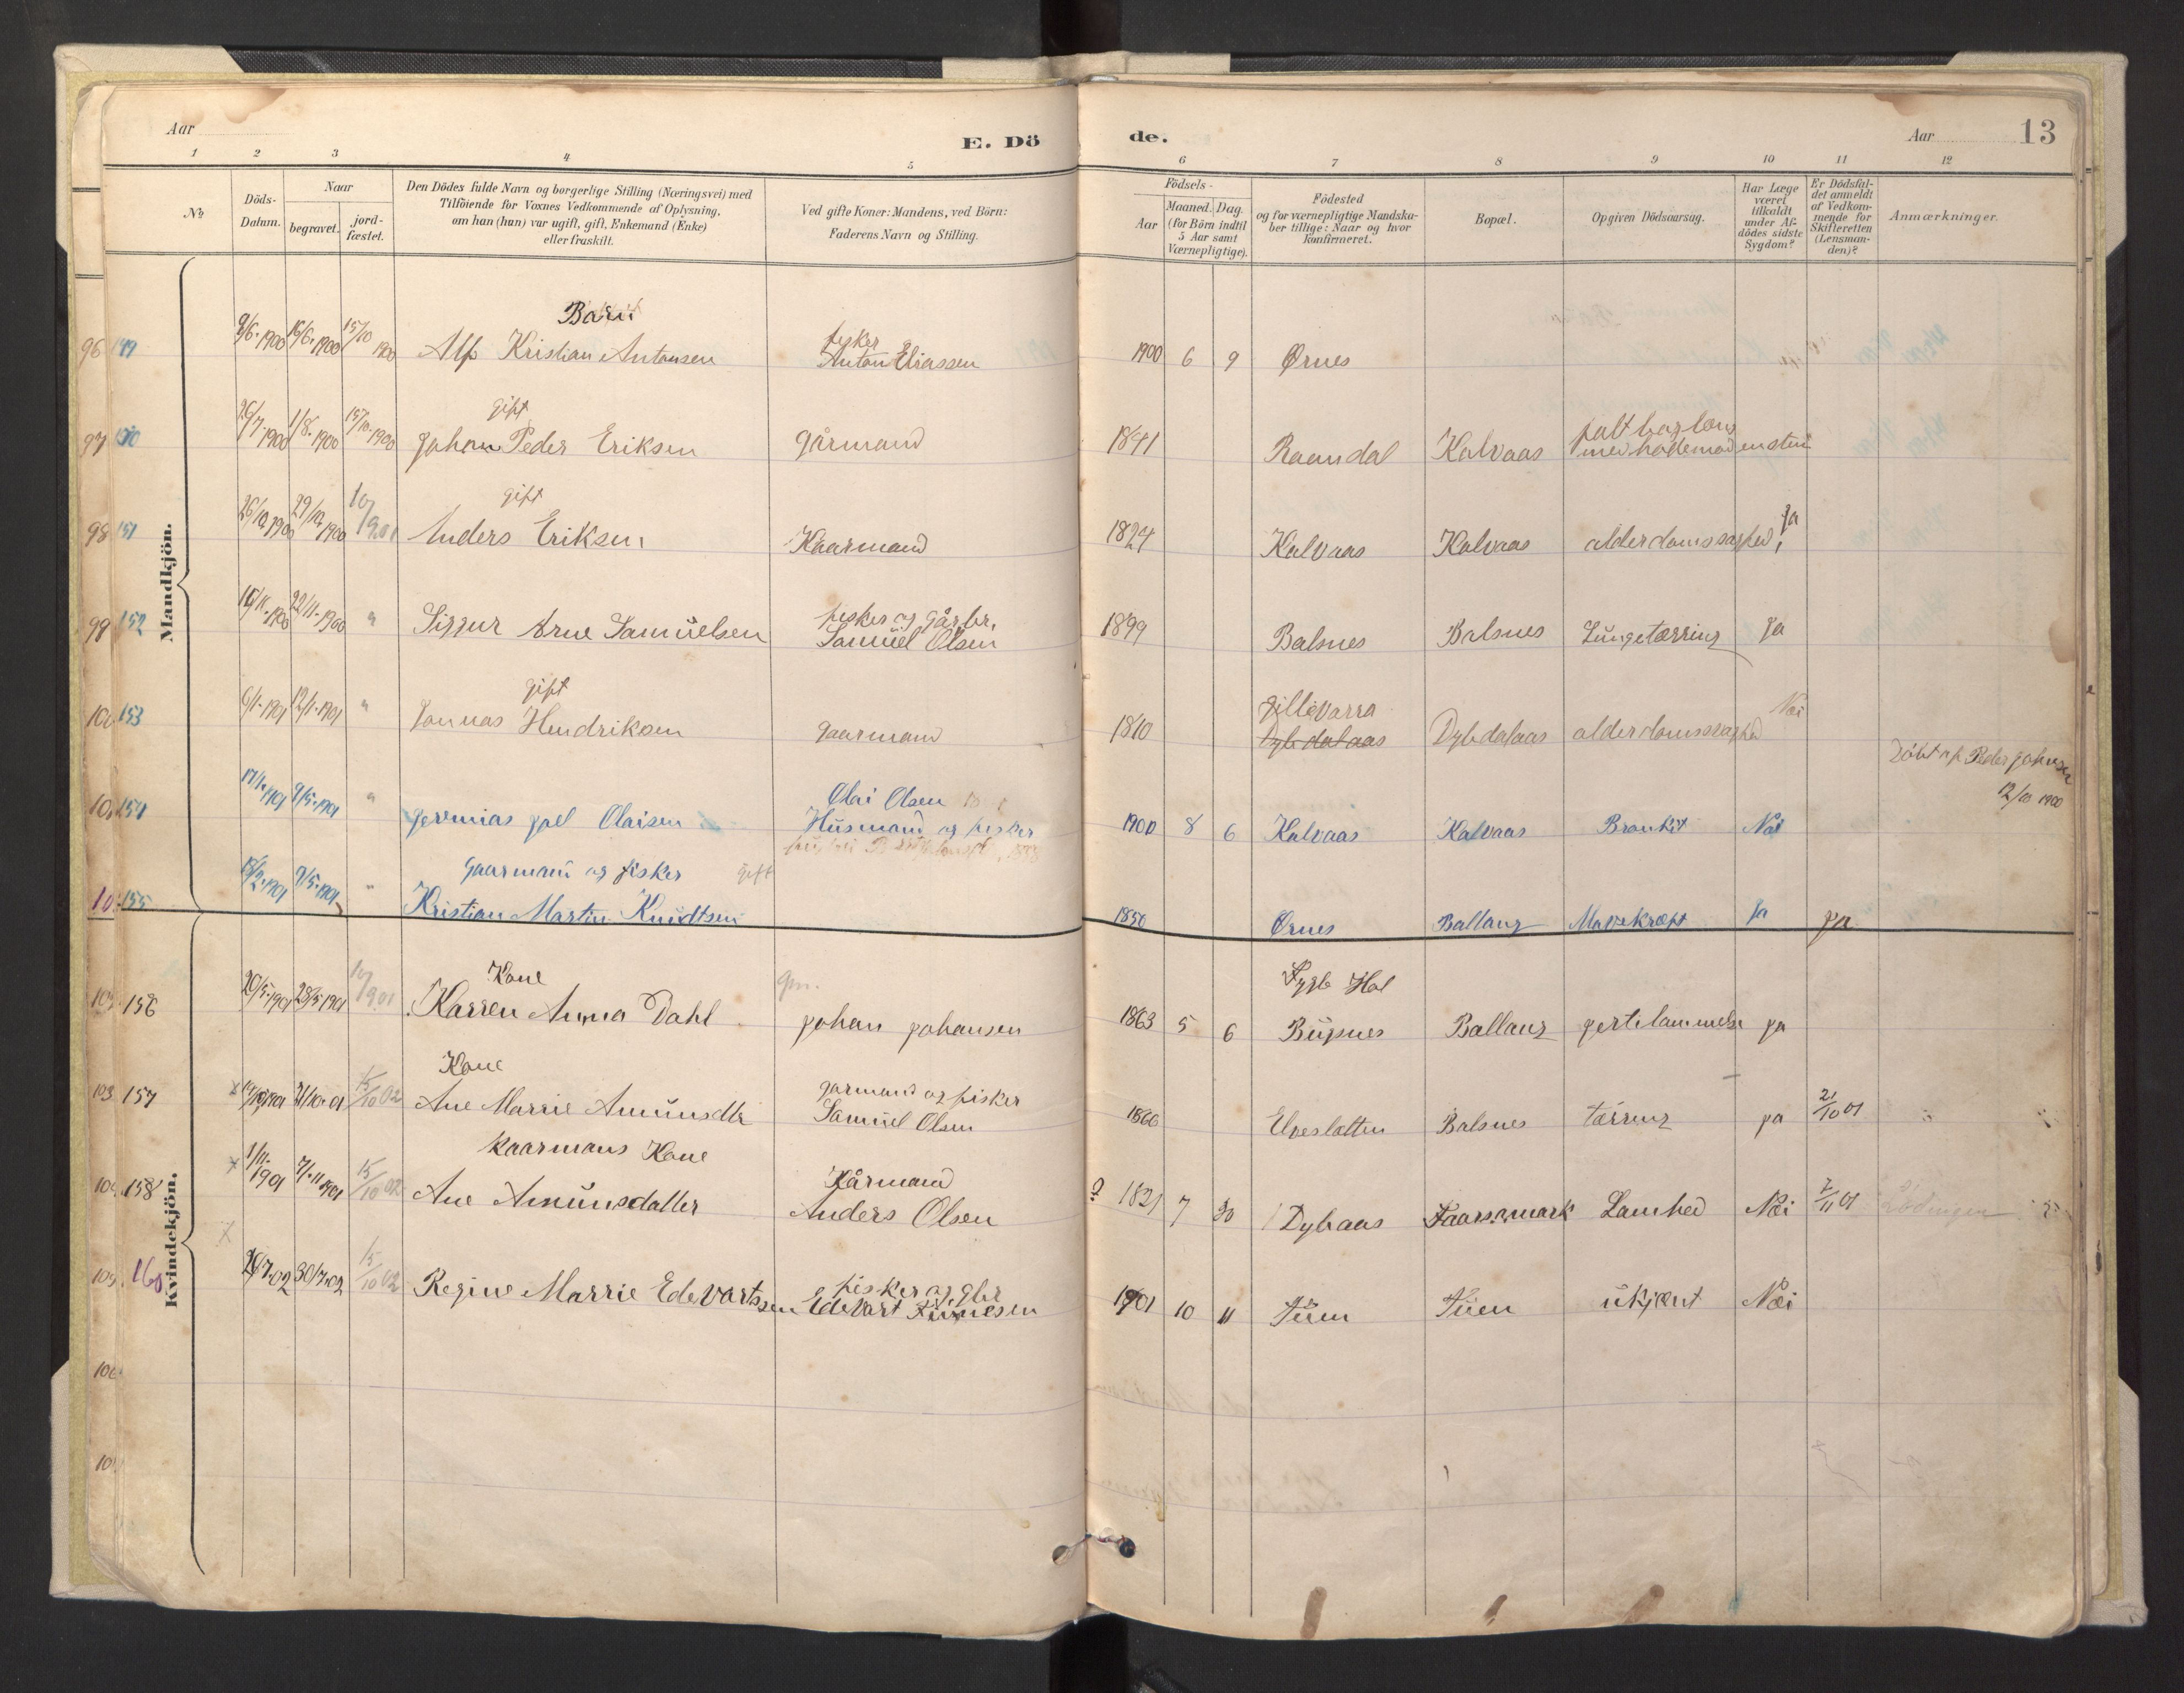 Aar
E. Dö
de.
Aar
13
1 2 3 4 5 6 7 8 9 10 11 12
No
Döds-
Datum.
Naar
begravet.
jord-
fæstet.
Den Dödes fulde Navn og borgerlige Stilling (Næringsvei) med
Tilföiende for Voxnes Vedkommende af Oplysning,
om han (hun) var ugift, gift, Enkemand (Enke)
eller fraskilt.
Ved gifte Koner: Mandens, ved Börn:
Faderens Navn og Stilling.
Födsels-
Aar
Maaned. Dag.
(for Börn indtil
5 Aar samt
Værnepligtige).
Födested
og for værnepligtige Mandska-
ber tillige: Naar og hvor
konfirmeret.
Bopæl.
Opgiven Dödsaarsag.
Har Læge
været
tilkaldt
under Af-
dödes sidste
Sygdom?
Er Dödsfal-
det anmeldt
af Vedkom-
mende for
Skifteretten
(Lensman-
den)?
Anmærkninger.
Mandkjön.
Barn
96 149 9/6.1900 16/6.1900 15/10 1900 Alf Kristian Antonsen
fisker
Anton Eliassen
1900 6 9 Ørnes
gift
97 150 26/7.1900 1/8.1900 15/10.1900 Johan Peder Eriksen gårmand 1841 Raandal Kalvaas
98 151 26/10 1900 29/10 1900 10/9.01
gift
Anders Eriksen Kaarmand 1824 Kalvaas Kalvaas Ja
99 152 22/11.1900 " Siggur Arne Samuelsen
fisker og gårbr.
Samuel Olsen
1899 Balsnes Balsnes Lungetærring Ja
gift
153 6/1.1901 12/1.1901 " Jonnas Hendriksen gaarmand 1810
Gillevarra
Dybdalaas Dybdalaas alderdomssvaghed Nei
154 17/1.1901 9/5.1901 " Jeremias Joel Olaisen
Olai Olsen
Husmand og fisker
1900 8 6 Kalvaas Kalvaas Bronkit Nei
Döbt af Peder Johnsen
12/10 1900
155 18/2.1901 9/5.1901 "
gaarmand og fisker gift
Kristian Martin Knudtsen
1850 Ørnes Ballang Mavekræft Ja Ja
Kvindekjön.
156 20/5.1901 28/5 1901 10/9.01
Kone
Karren Anna Dahl
gm.
Johan Johansen
1863 5 6
Bujsnes Ballang Ja
103 157 21/10.01 15/10 02
Kone
Ane Marrie Amunsdtr
garmand og fisker
Samuel Olsen
1866 Elveslotten Balsnes tærring Ja 21/10 01
104 158 1/11.1901 7/11 1901 15/10 02
kaarmans Kone
Ane Amunsdatter
Kårmand
Anders Olsen
? 1821 7 30 Dybaas Faarsmark Lamhed Nei 7/11 01 Lödingen
105 160 30/7.02 15/10 02 Regine Marrie Edevartsen
fisker og gbr
Edevart
1901 10 11 ukjent Nei
106